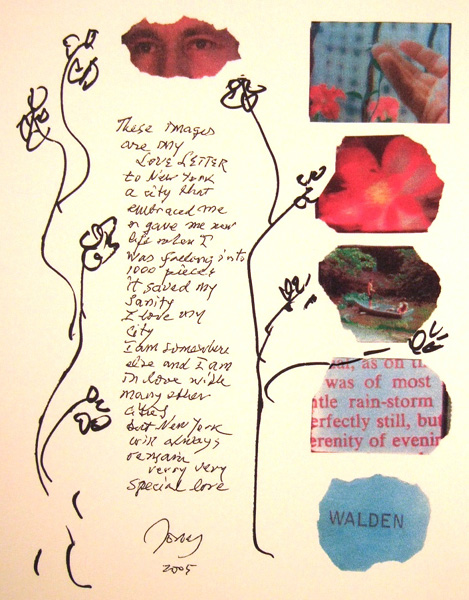 These images
are my
LOVE LETTER
to New York
a city that
embraced me
& gave me new
life when I
was falling into
1000 pieces
it saved my
Sanity
I love my
City
I am somewhere
else and I am
in love with
many other
cities
but New York
will always
remain
very very
special love
2005
al, as on th
was of most
ntle rain-storm
erfectly still, but
erenity of evenin
WALDEN